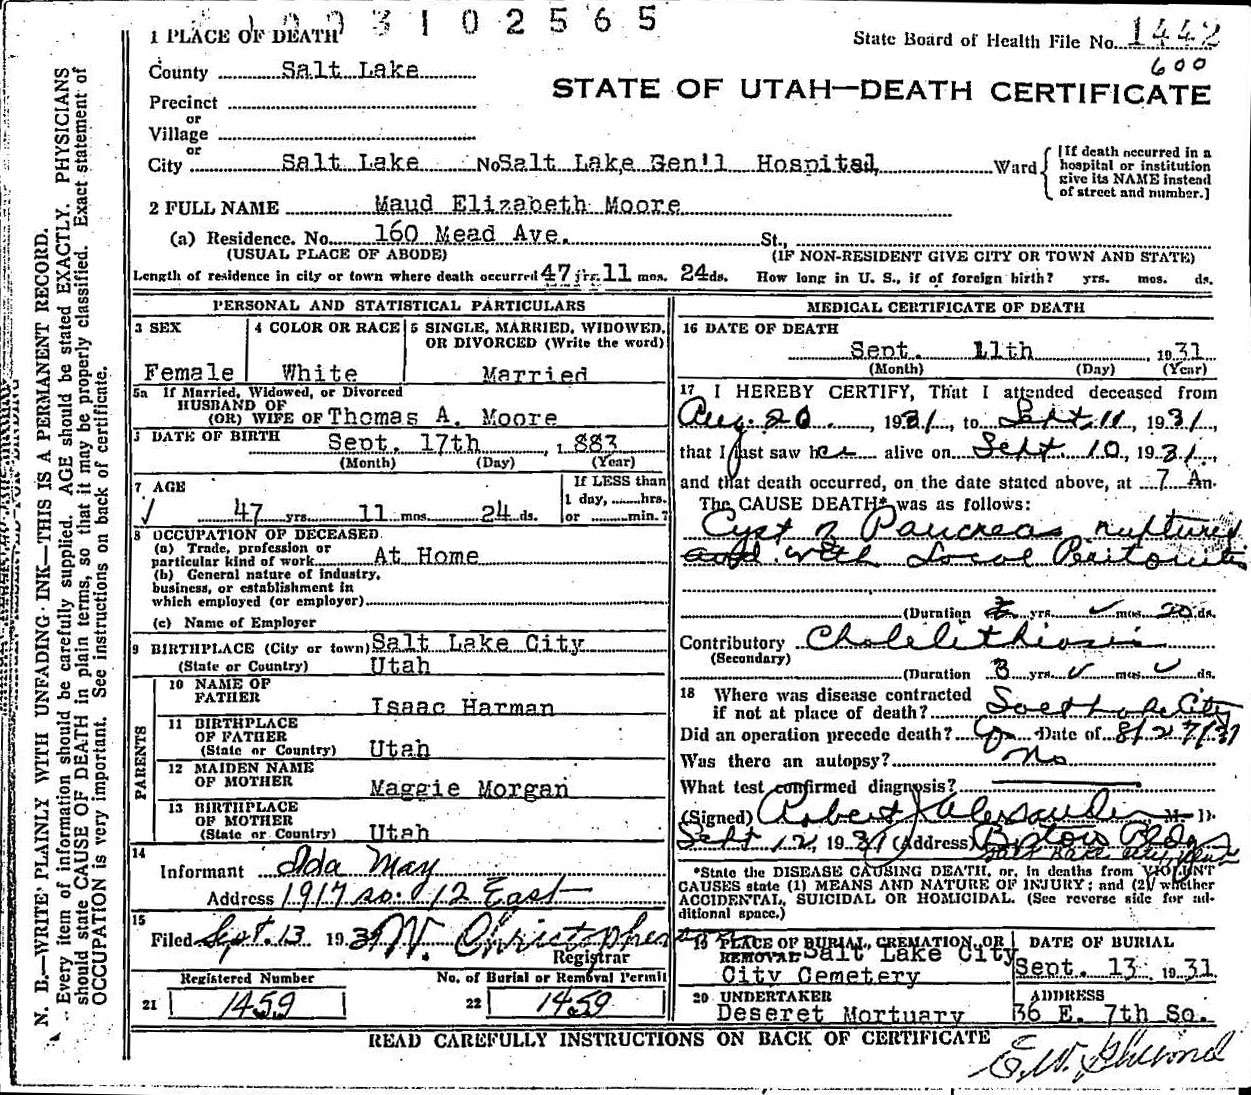 3 1 0 2 5 6 5
1 PLACE OF DEATH
State Board of Health File No. 1442
600
County Salt Lake
STATE OF UTAH—DEATH CERTIFICATE
Precinct
or
Village
or
City Salt Lake No Salt Lake Gen'l Hospital, Ward
[If death occurred in a
hospital or institution
give its NAME instead
of street and number.]
2 FULL NAME Maud Elizabeth Moore
(a) Residence. No. 160 Mead Ave. St.,
(USUAL PLACE OF ABODE) (IF NON-RESIDENT GIVE CITY OR TOWN AND STATE)
Length of residence in city or town where death occurred 47 yrs. 11 mos. 24 ds. How long in U. S., if of foreign birth? yrs. mos. ds.
PERSONAL AND STATISTICAL PARTICULARS
3 SEX
Female
4 COLOR OR RACE
White
5 SINGLE, MARRIED, WIDOWED,
OR DIVORCED (Write the word)
Married
5a If Married, Widowed, or Divorced
HUSBAND OF
(OR) WIFE OF Thomas A. Moore
DATE OF BIRTH
Sept. 17th , 1 883
(Month) (Day) (Year)
7 AGE
47 yrs. 11 mos. 24 ds.
If LESS than
1 day, ......hrs.
or ......min.?
8 OCCUPATION OF DECEASED
(a) Trade, profession or
particular kind of work At Home
(b) General nature of industry,
business, or establishment in
which employed (or employer)
(c) Name of Employer
9 BIRTHPLACE (City or town) Salt Lake City
(State or Country) Utah
PARENTS
10 NAME OF
FATHER Isaac Harman
11 BIRTHPLACE
OF FATHER
(State or Country) Utah
12 MAIDEN NAME
OF MOTHER Maggie Morgan
13 BIRTHPLACE
OF MOTHER
(State or Country) Utah
14
Informant Ida May
Address 1917 So. 12 East
15
Filed Sept. 13 1931 W. Christopherson
Registrar
Registered Number
21 1459
No. of Burial or Removal Permit
22 1459
MEDICAL CERTIFICATE OF DEATH
16 DATE OF DEATH
Sept. 11th , 1931
(Month) (Day) (Year)
17 I HEREBY CERTIFY, That I attended deceased from
Aug. 20, 1931, to Sept. 11, 1931,
that I last saw her alive on Sept. 10, 1931,
and that death occurred, on the date stated above, at 7 Am.
The CAUSE DEATH* was as follows:
Cyst of Pancreas ruptured
and with Local Peritonitis
(Duration yrs. mos. 20 ds.
Contributory Cholelithiosis
(Secondary)
(Duration 3 yrs. mos. ds.
18 Where was disease contracted
if not at place of death? Salt Lake City
Did an operation precede death? Date of 8/27/31
Was there an autopsy? No
What test confirmed diagnosis?
(Signed) Robert Alexander M. D.
Sept 12, 1931 (Address) Boston Bldg
Salt Lake City, Utah
*State the DISEASE CAUSING DEATH, or, in deaths from VIOLENT
CAUSES state (1) MEANS AND NATURE OF INJURY; and (2) whether
ACCIDENTAL, SUICIDAL OR HOMICIDAL. (See reverse side for ad-
ditional space.)
19 PLACE OF BURIAL, CREMATION, OR
REMOVAL Salt Lake City
City Cemetery
DATE OF BURIAL
Sept. 13 1931
20 UNDERTAKER
Deseret Mortuary
ADDRESS
36 E. 7th So.
READ CAREFULLY INSTRUCTIONS ON BACK OF CERTIFICATE
N. B.—WRITE PLAINLY WITH UNFADING INK—THIS IS A PERMANENT RECORD.
Every item of information should be carefully supplied. AGE should be stated EXACTLY. PHYSICIANS
should state CAUSE OF DEATH in plain terms, so that it may be properly classified. Exact statement of
OCCUPATION is very important. See instructions on back of certificate.